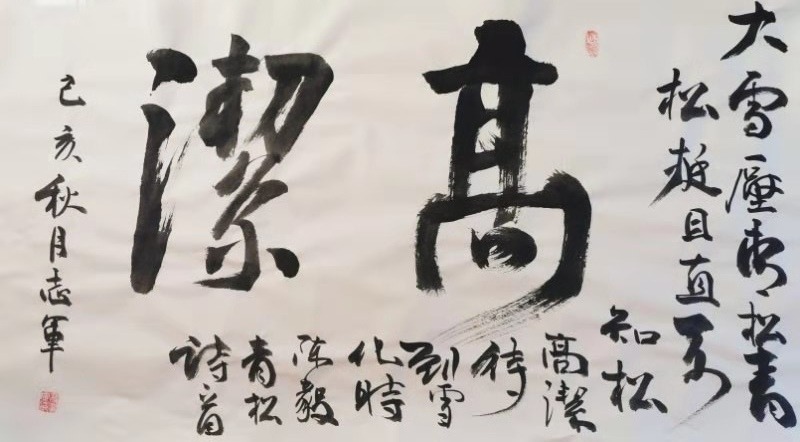 高潔
大雪壓青松青
松挺且直要
知松
高潔
待
到雪
化時
陈毅
青松
詩首
己亥秋月志軍